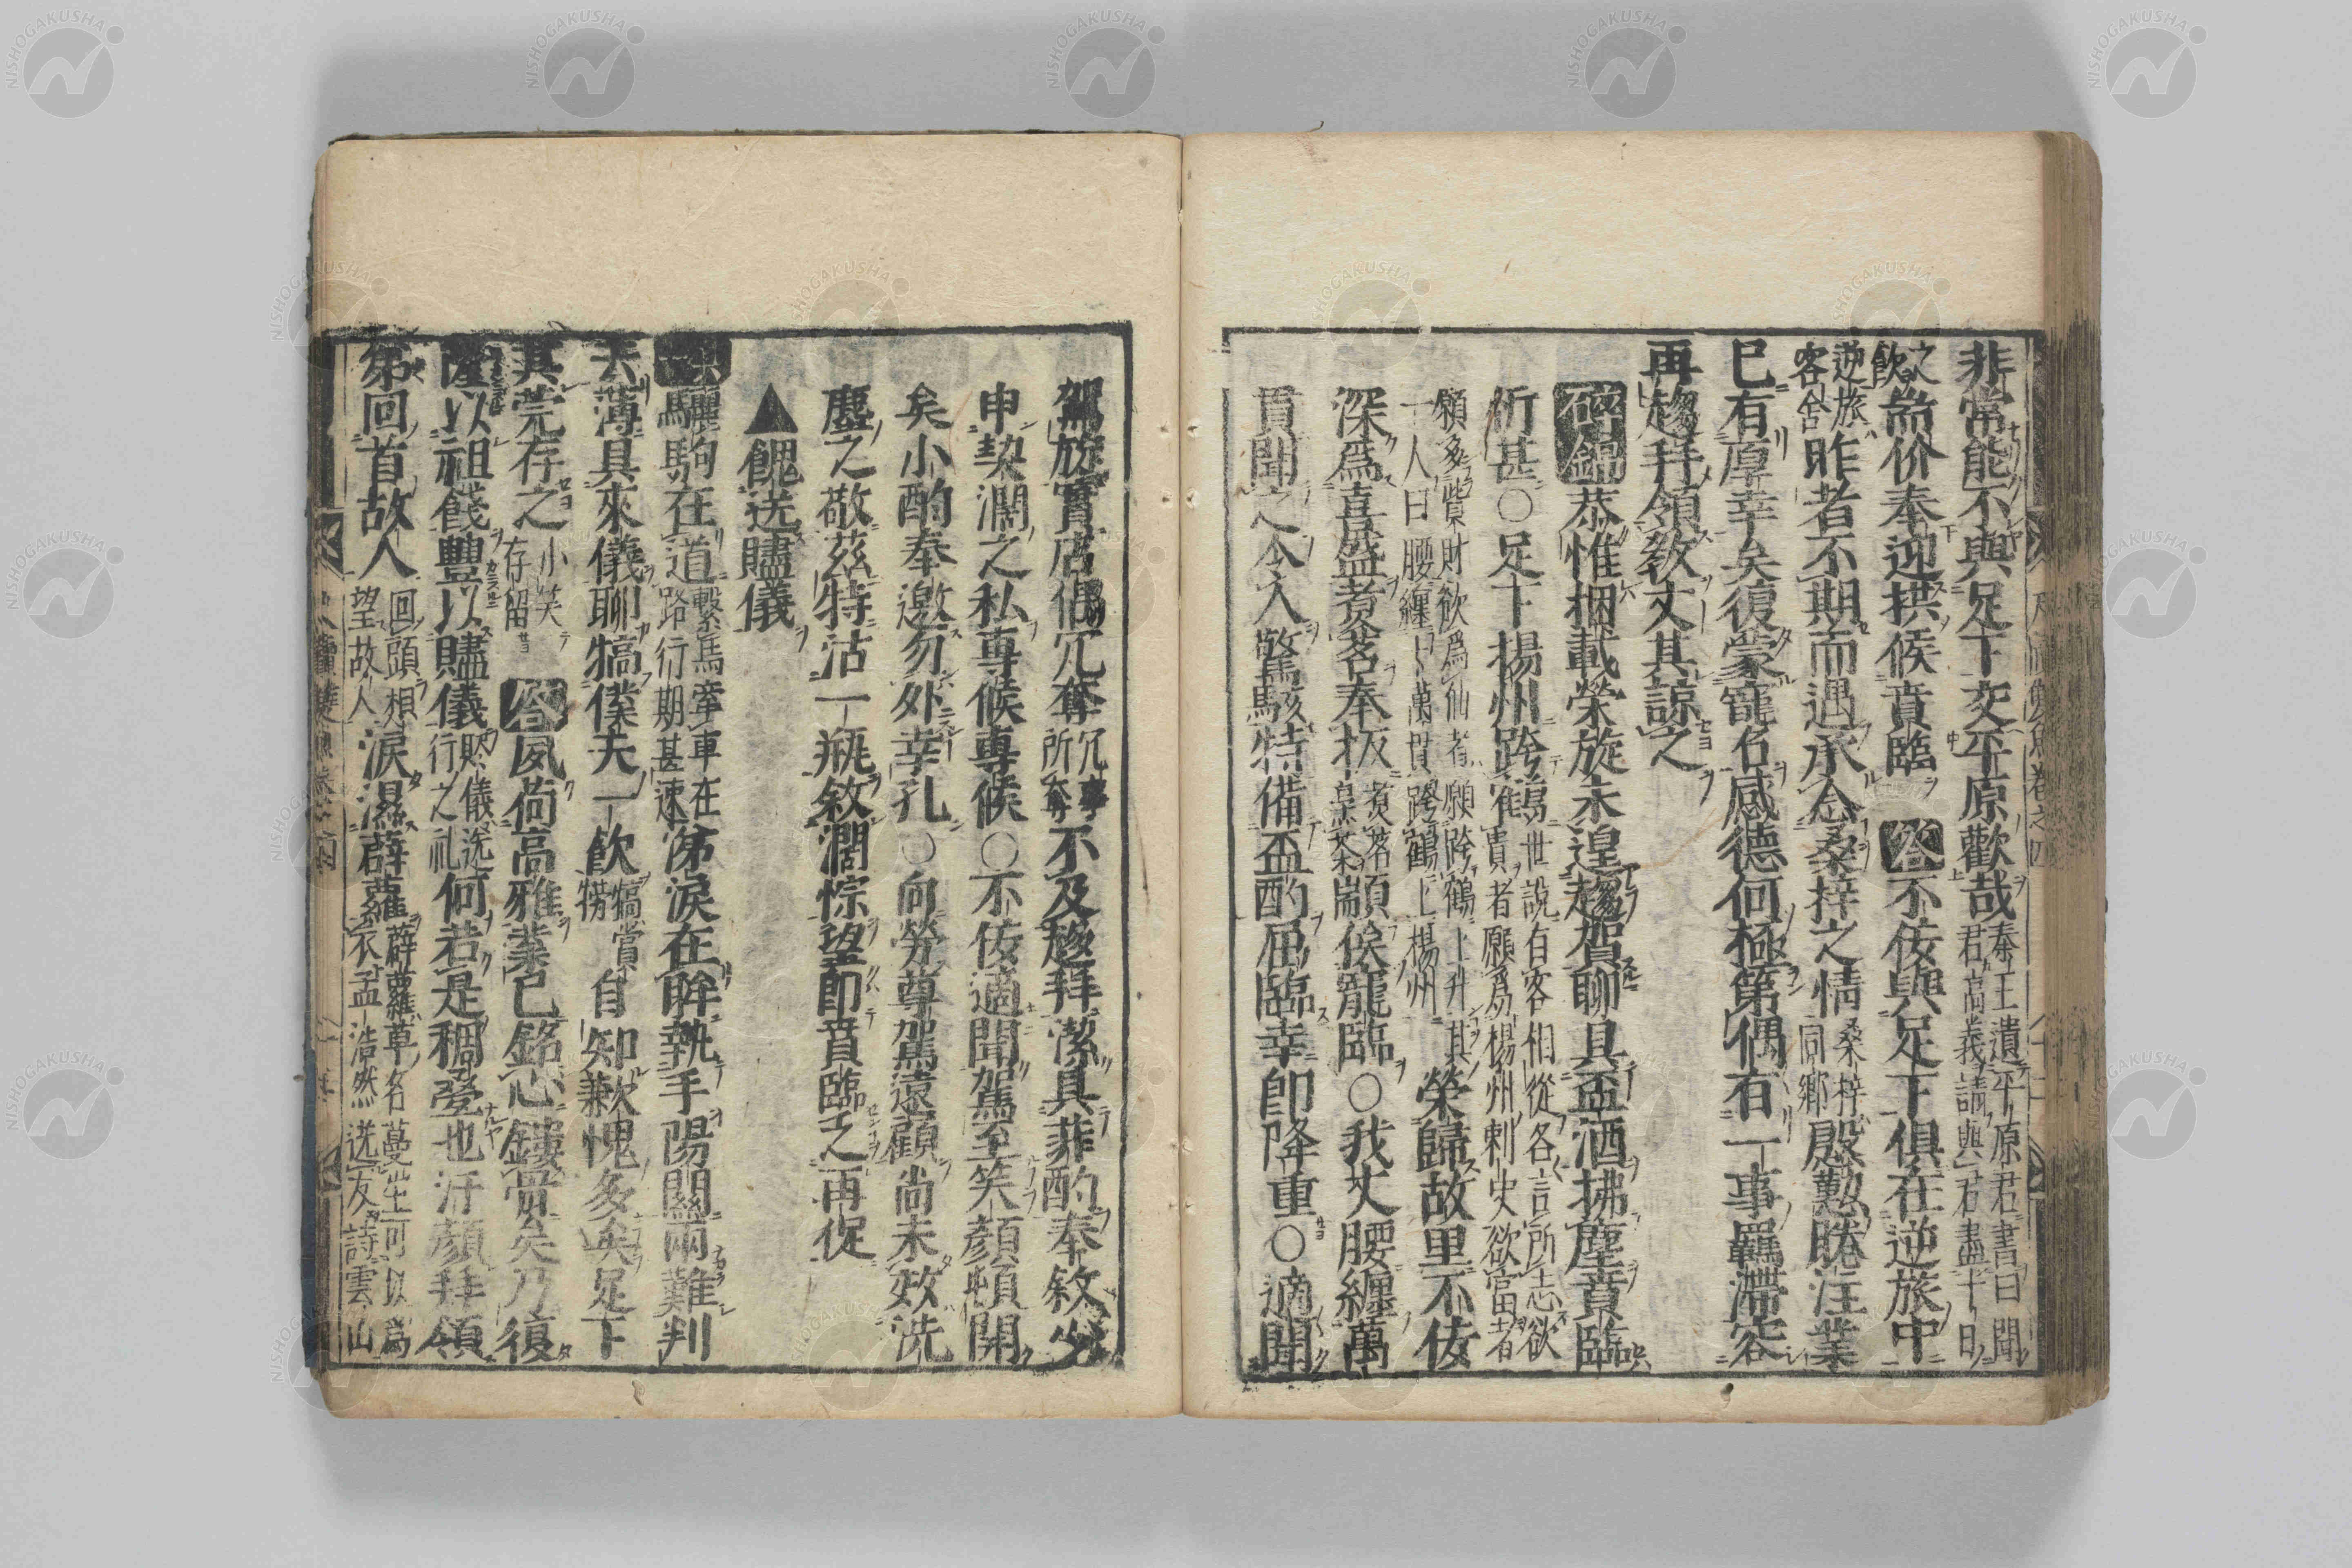 非常能不與足下交平原歡哉秦王遺平原君書曰聞君高義請與君盡十日
之飲耑价奉迎拱候賁臨答不佞與足下俱在逆旅中
逆旅客舍昨者不期而遇承念桑梓之情桑梓同鄉慇懃睠注業
已有厚幸矣復蒙寵召感德何極第偶有一事羈滯容
再趨拜領教丈其諒之
碎錦恭惟捆載榮旋未遑趨賀聊具盃酒拂塵賁臨
祈甚○足下揚州跨鶴世說有客相從各言所志欲富者願為楊州刺史欲富者
願多貲財欲為仙者願跨鶴上升其一人曰腰纏十萬貫跨鶴上楊州榮歸故里不佞
深為喜盛煑茗奉扳煑茗烹茶耑俟寵臨○我丈腰纏萬
貫聞之令人驚駭特備盃酌屈臨幸即降重○適聞
駕旋寳店偶冗奪冗事所奪不及趨拜潔具菲酌奉敘少
申契濶之私專候專候○不佞適聞駕至笑顏頓開
矣小酌奉邀勿外幸孔○向勞尊駕遠顧尚未效洗
塵之敬茲特沽一瓶敘濶悰望即賁臨之再促
▲餽送贐儀
與驪駒在道繫馬牽車在路行期甚速涕淚在眸執手陽關兩難判
去薄具來儀聊犒僕夫一飲犒賞勞自知歉愧多矣足下
其莞存之小笑存留答夙荷高雅業已銘心鏤骨矣乃復
隆以祖餞豐以贐儀贐儀送行之礼何若是稠疊也汗顏拜領
第回首故人回頭相望故人淚濕薜蘿薜蘿草名蔓生可以為衣孟浩然送友詩雲山